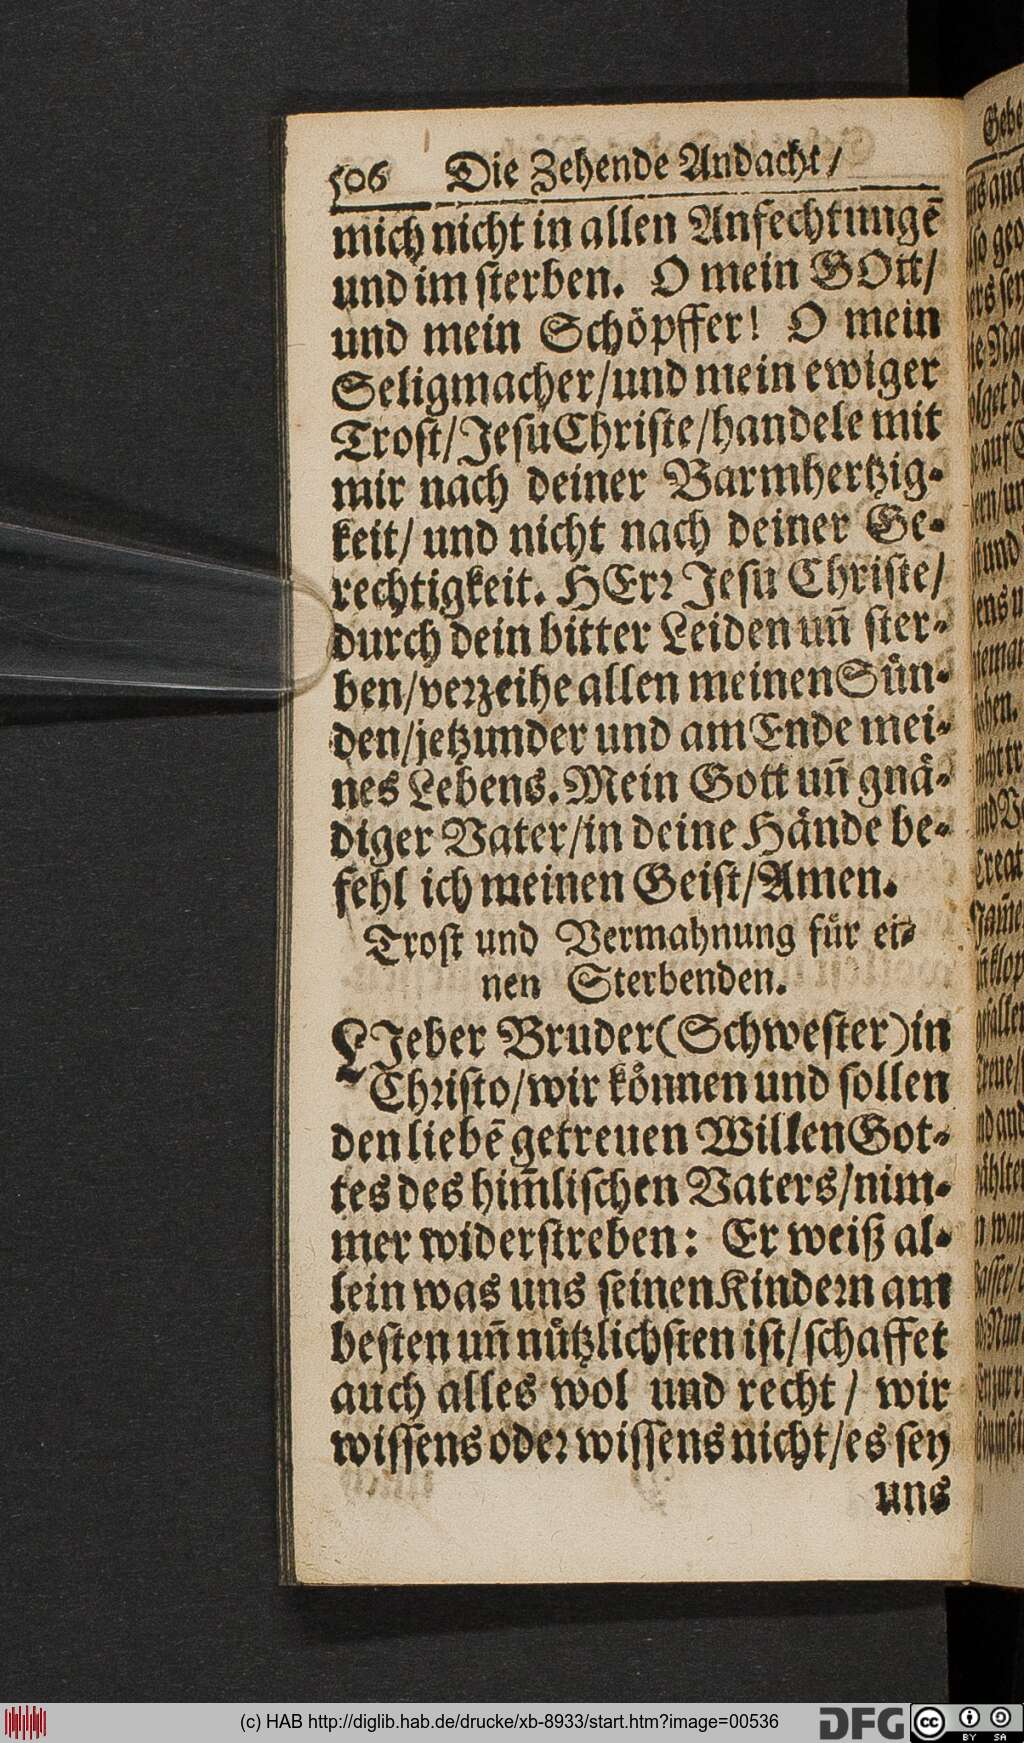 506 Die Zehende Andacht/
mich nicht in allen Anfechtungē
und im sterben. O mein GOtt/
und mein Schöpffer! O mein
Seligmacher/und mein ewiger
Trost/Jesu Christe/handele mit
mir nach deiner Barmhertzig-
keit/ und nicht nach deiner Ge-
rechtigkeit. HErr Jesu Christe/
durch dein bitter Leiden uñ ster-
ben/verzeihe allen meinen Sün-
den/jetzunder und am Ende mei-
nes Lebens. Mein Gott uñ gnä-
diger Vater/in deine Hände be-
fehl ich meinen Geist/Amen.
Trost und Vermahnung für ei-
nen Sterbenden.
LJeber Bruder (Schwester) in
Christo/wir können und sollen
den liebē getreuen Willen Got-
tes des him̄lischen Vaters/nim-
mer widerstreben: Er weiß al-
lein was uns seinen Kindern am
besten uñ nützlichsten ist/schaffet
auch alles wol und recht/ wir
wissens oder wissens nicht/es sey
uns
(c) HAB http://diglib.hab.de/drucke/xb-8933/start.htm?image=00536
DFG
cc BY SA